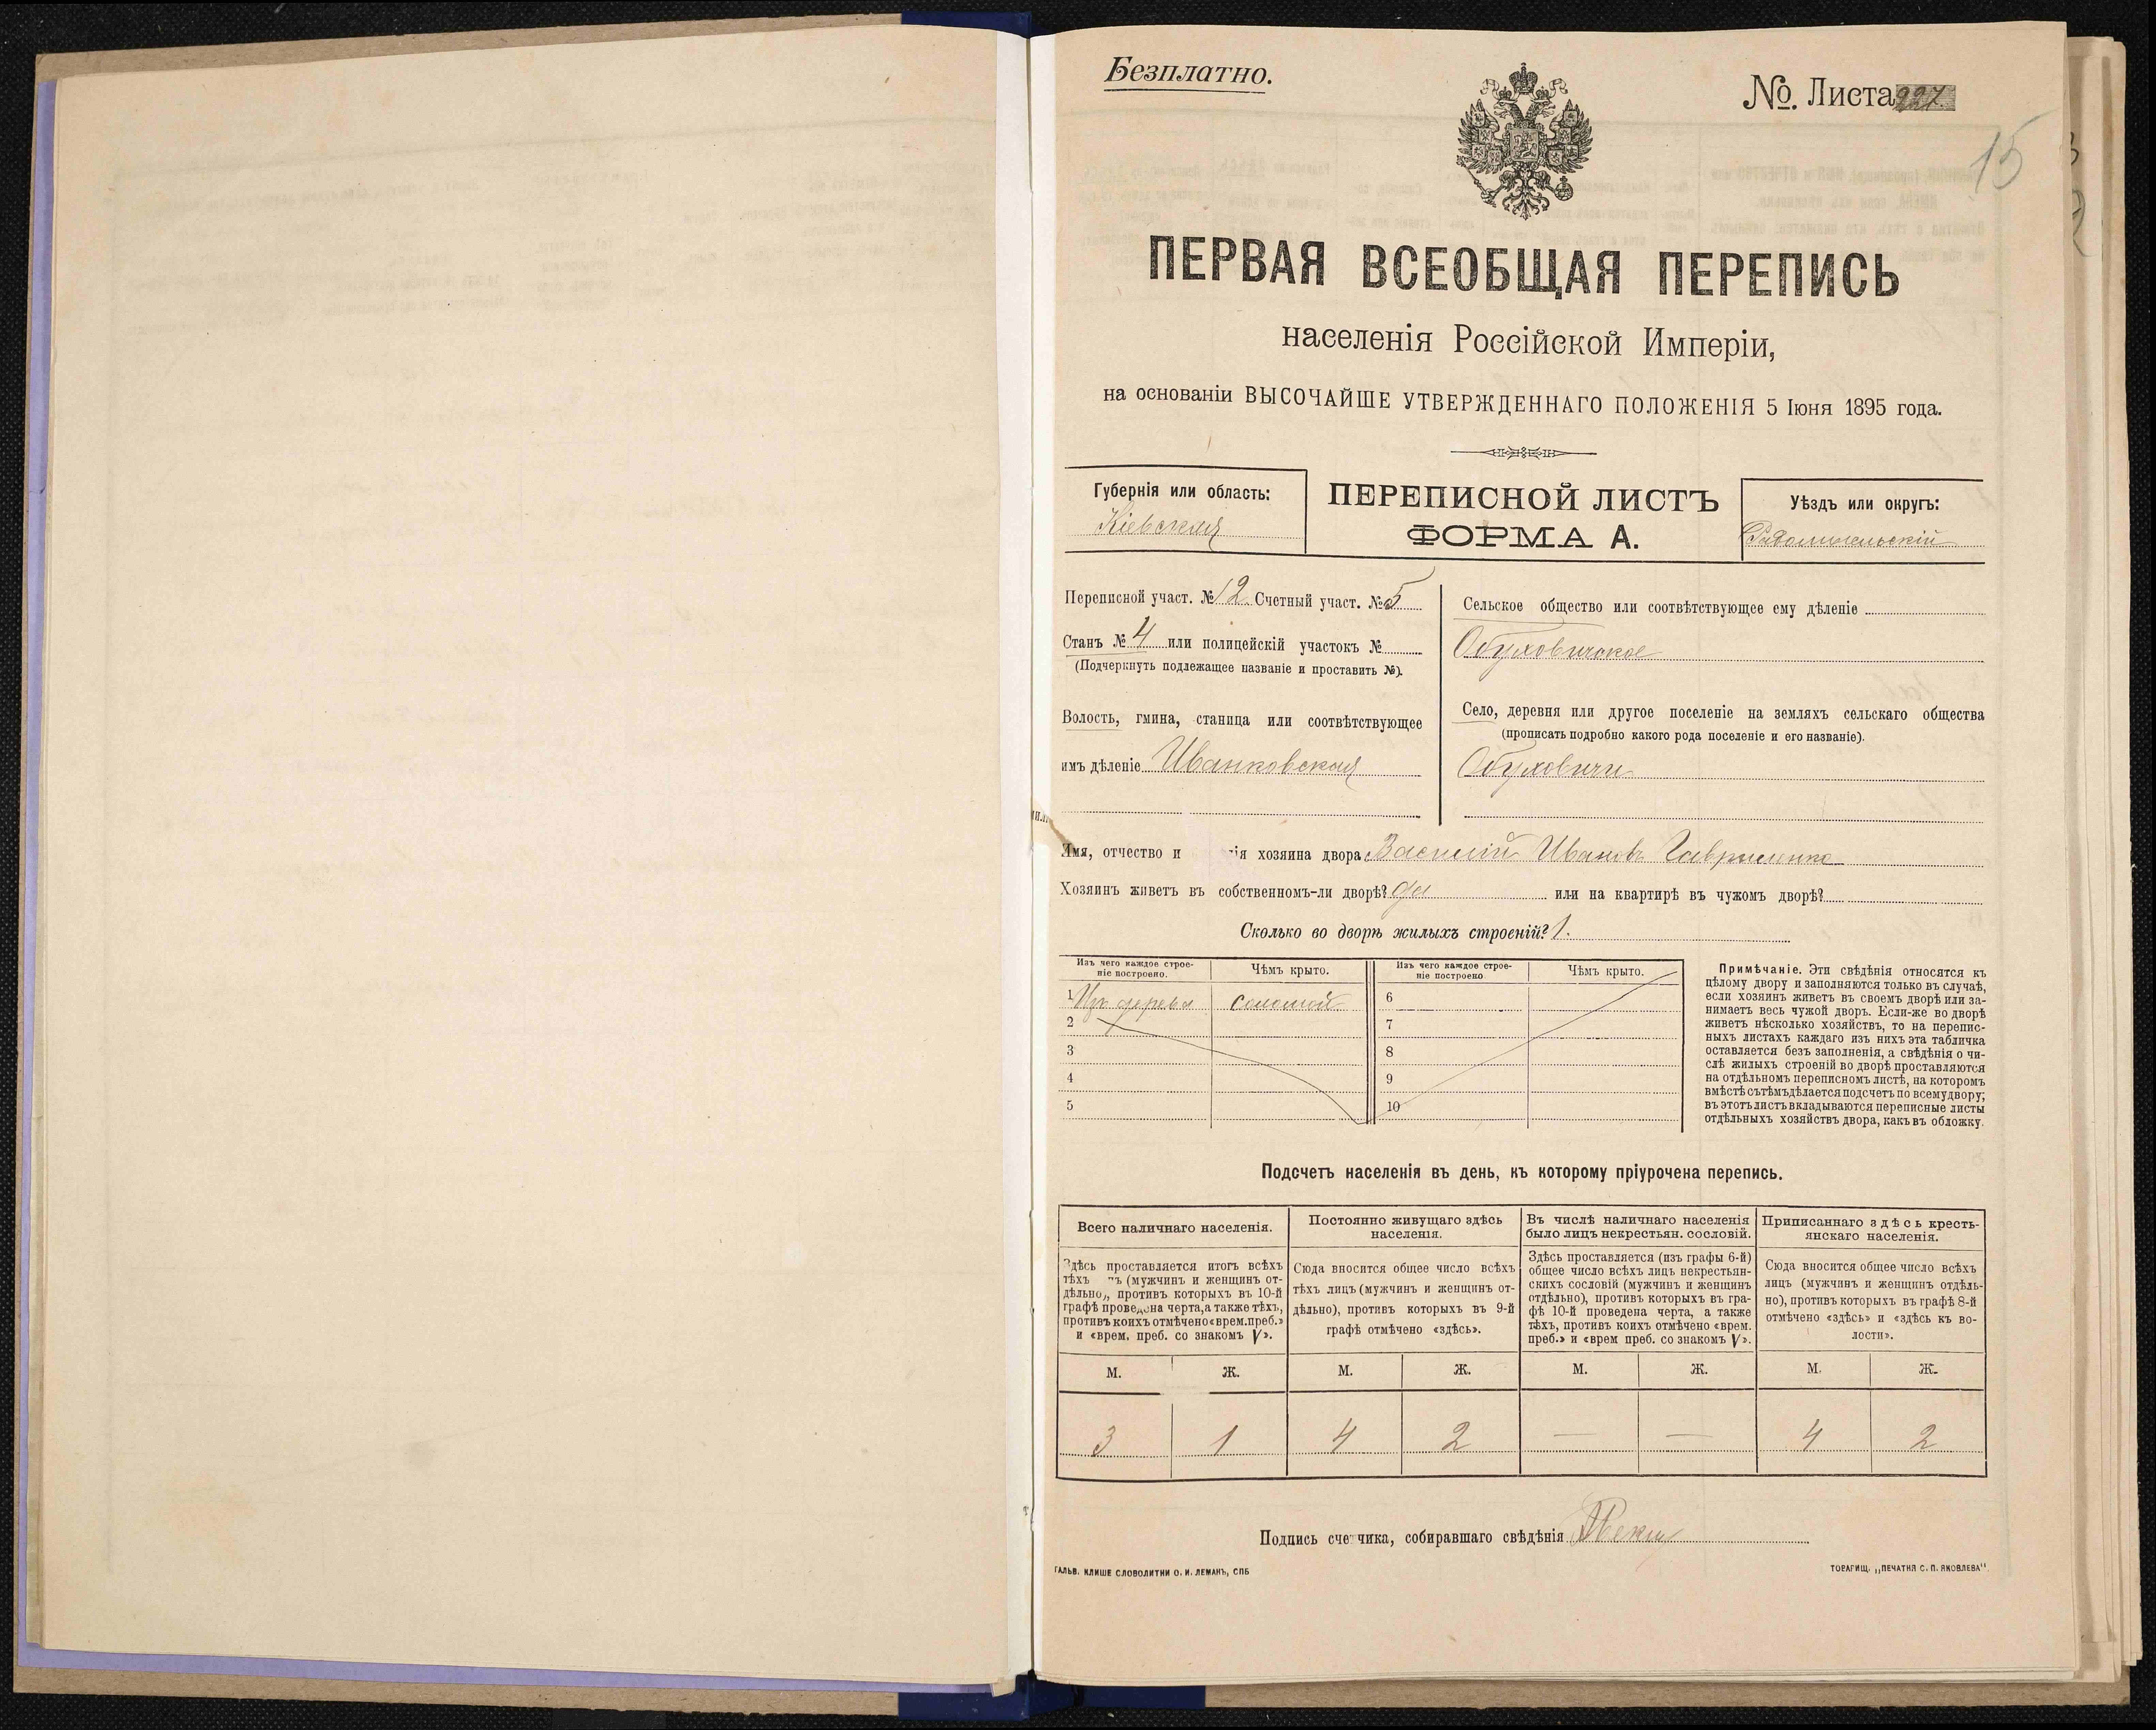 Безплатно.
№. Листа 227.
15
ПЕРВАЯ ВСЕОБЩАЯ ПЕРЕПИСЬ
населенія Россійской Имперіи,
на основаніи ВЫСОЧАЙШЕ УТВЕРЖДЕННАГО ПОЛОЖЕНІЯ 5 Іюня 1895 года.
Губернія или область:
Кіевская
ПЕРЕПИСНОЙ ЛИСТЪ
ФОРМА А.
Уѣздъ или округъ:
Радомысльскій
Переписной участ. № 12 Счетный участ. № 5
Станъ № 4 или полицейскій участокъ №
(Подчеркнуть подлежащее названіе и проставить №).
Волость, гмина, станица или соотвѣтствующее
имъ дѣленіе Иванковская
Сельское общество или соотвѣтствующее ему дѣленіе
Обуховичское
Село, деревня или другое поселеніе на земляхъ сельскаго общества
(прописать подробно какого рода поселеніе и его названіе).
Обуховичи
Имя, отчество и ія хозяина двора Василій Ивановъ Гавриленко
Хозяинъ живетъ въ собственномъ-ли дворѣ? да или на квартирѣ въ чужомъ дворѣ?
Сколько во дворѣ жилыхъ строеній? 1.
Изъ чего каждое строе-
ніе построено.
Чѣмъ крыто.
Изъ чего каждое строе-
ніе построено
Чѣмъ крыто.
1 Изъ дерева соломой 6
2 7
3 8
4 9
5 10
Примѣчаніе. Эти свѣдѣнія относятся къ
цѣлому двору и заполняются только въ случаѣ,
если хозяинъ живетъ въ своемъ дворѣ или за-
нимаетъ весь чужой дворъ. Если-же во дворѣ
живетъ нѣсколько хозяйствъ, то на перепис-
ныхъ листахъ каждаго изъ нихъ эта табличка
оставляется безъ заполненія, а свѣдѣнія о чи-
слѣ жилыхъ строеній во дворѣ проставляются
на отдѣльномъ переписномъ листѣ, на которомъ
вмѣстѣ съ тѣмъ дѣлается подсчетъ по всему двору;
въ этотъ листъ вкладываются переписные листы
отдѣльныхъ хозяйствъ двора, какъ въ обложку.
Подсчетъ населенія въ день, къ которому пріурочена перепись.
Всего наличнаго населенія.
Здѣсь проставляется итогъ всѣхъ
тѣхъ ъ (мужчинъ и женщинъ от-
дѣльно), противъ которыхъ въ 10-й
графѣ проведена черта, а также тѣхъ,
противъ коихъ отмѣчено «врем. преб.»
и «врем. преб. со знакомъ V».
Постоянно живущаго здѣсь
населенія.
Сюда вносится общее число всѣхъ
тѣхъ лицъ (мужчинъ и женщинъ от-
дѣльно), противъ которыхъ въ 9-й
графѣ отмѣчено «здѣсь».
Въ числѣ наличнаго населенія
было лицъ некрестьян. сословій.
Здѣсь проставляется (изъ графы 6-й)
общее число всѣхъ лицъ некрестьян-
скихъ сословій (мужчинъ и женщинъ
отдѣльно), противъ которыхъ въ гра-
фѣ 10-й проведена черта, а также
тѣхъ, противъ коихъ отмѣчено «врем.
преб.» и «врем преб. со знакомъ V».
Приписаннаго здѣсь кресть-
янскаго населенія.
Сюда вносится общее число всѣхъ
лицъ (мужчинъ и женщинъ отдѣль-
но), противъ которыхъ въ графѣ 8-й
отмѣчено «здѣсь» и «здѣсь къ во-
лости».
М. Ж. М. Ж. М. Ж. М. Ж.
3 1 4 2 — — 4 2
Подпись счетчика, собиравшаго свѣдѣнія
ГАЛЬВ. КЛИШЕ СЛОВОЛИТНИ О. И. ЛЕМАНЪ, СПБ
ТОВАРИЩ. „ПЕЧАТНЯ С. П. ЯКОВЛЕВА"